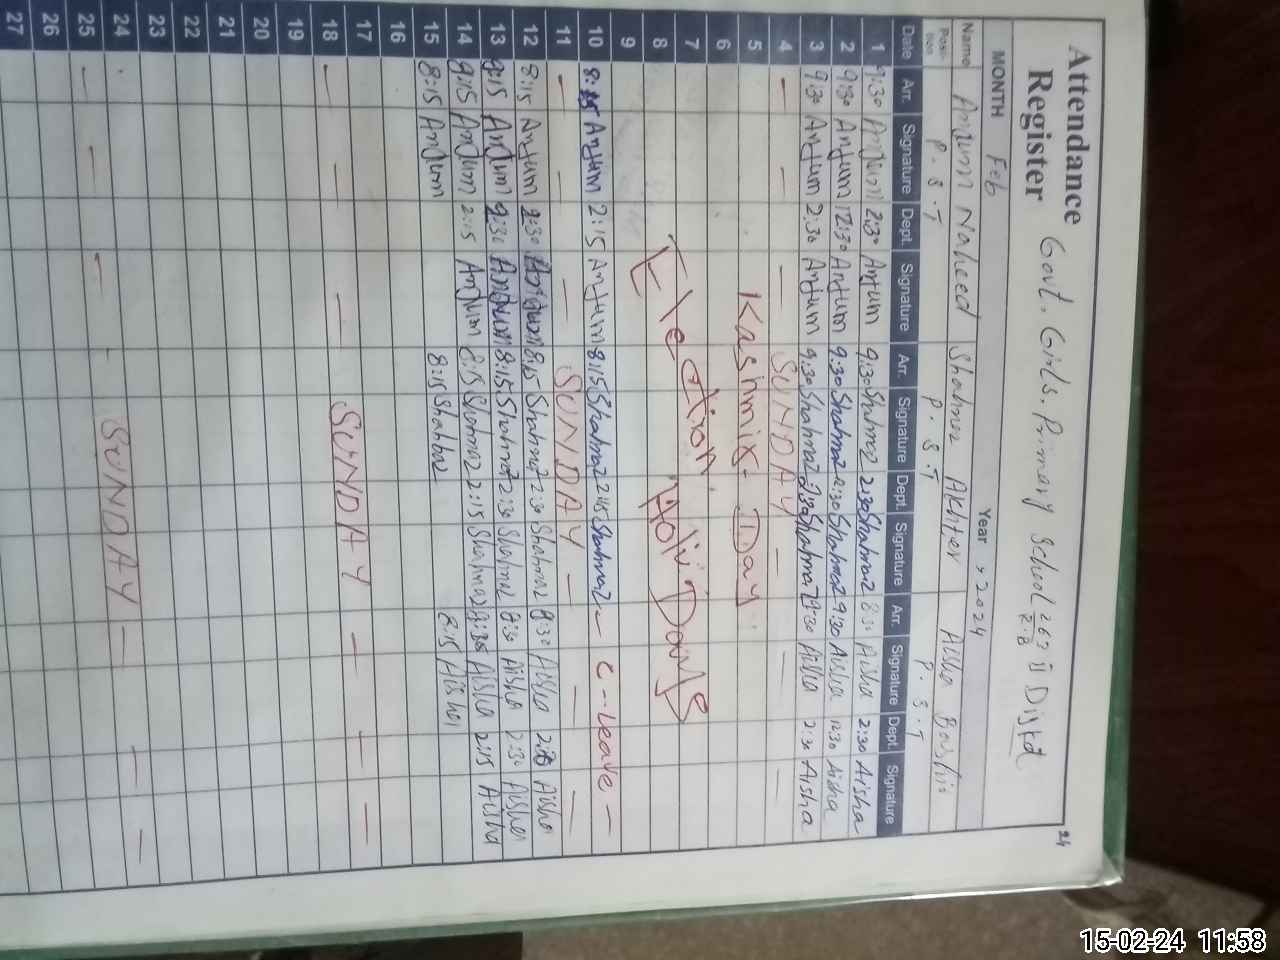 Attendance Register Govt. Girls. Primary School 263 II Distd
R.B
24
MONTH Feb Year 2024
Name Anjum Naheed Shahnaz Akhter Aisha Bashir
Posi-tion P.S.T P.S.T P.S.T
Date Arr. Signature Dept. Signature Arr. Signature Dept. Signature Arr. Signature Dept. Signature
1 9:30 Anjum 12:30 Anjum 9:30 Shahnaz 2:30 Shahnaz 8:30 Aisha 2:30 Aisha
2 9:30 Anjum 12:30 Anjum 9:30 Shahnaz 2:30 Shahnaz 9:30 Aisha 12:30 Aisha
3 9:30 Anjum 2:30 Anjum 9:30 Shahnaz 2:30 Shahnaz 9:30 Aisha 2:30 Aisha
4 — — — SUNDAY — — —
5 Kashmir Day
6
7 Election Holi Days
8
9
10 8:15 Anjum 2:15 Anjum 8:15 Shahnaz 2:15 Shahnaz — C--Leave —
11 — — — SUNDAY — — —
12 8:15 Anjum 2:30 Anjum 8:15 Shahnaz 2:30 Shahnaz 8:30 Aisha 2:30 Aisha
13 8:15 Anjum 2:30 Anjum 8:15 Shahnaz 2:30 Shahnaz 8:30 Aisha 2:30 Aisha
14 8:15 Anjum 2:15 Anjum 8:15 Shahnaz 2:15 Shahnaz 8:30 Aisha 2:15 Aisha
15 8:15 Anjum 8:15 Shahnaz 8:15 Aisha
16
17
18 — — — SUNDAY — — —
19
20
21
22
23
24
25 — — — SUNDAY — — —
26
27
15-02-24 11:58